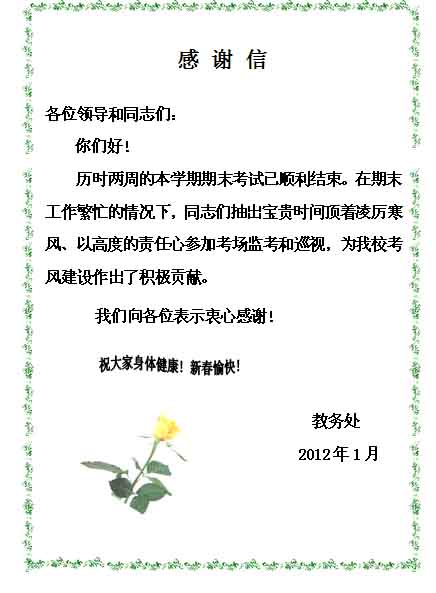 感 谢 信
各位领导和同志们：
你们好！
历时两周的本学期期末考试已顺利结束。在期末
工作繁忙的情况下，同志们抽出宝贵时间顶着凌厉寒
风、以高度的责任心参加考场监考和巡视，为我校考
风建设作出了积极贡献。
我们向各位表示衷心感谢！
祝大家身体健康！新春愉快！
教务处
2012 年 1 月